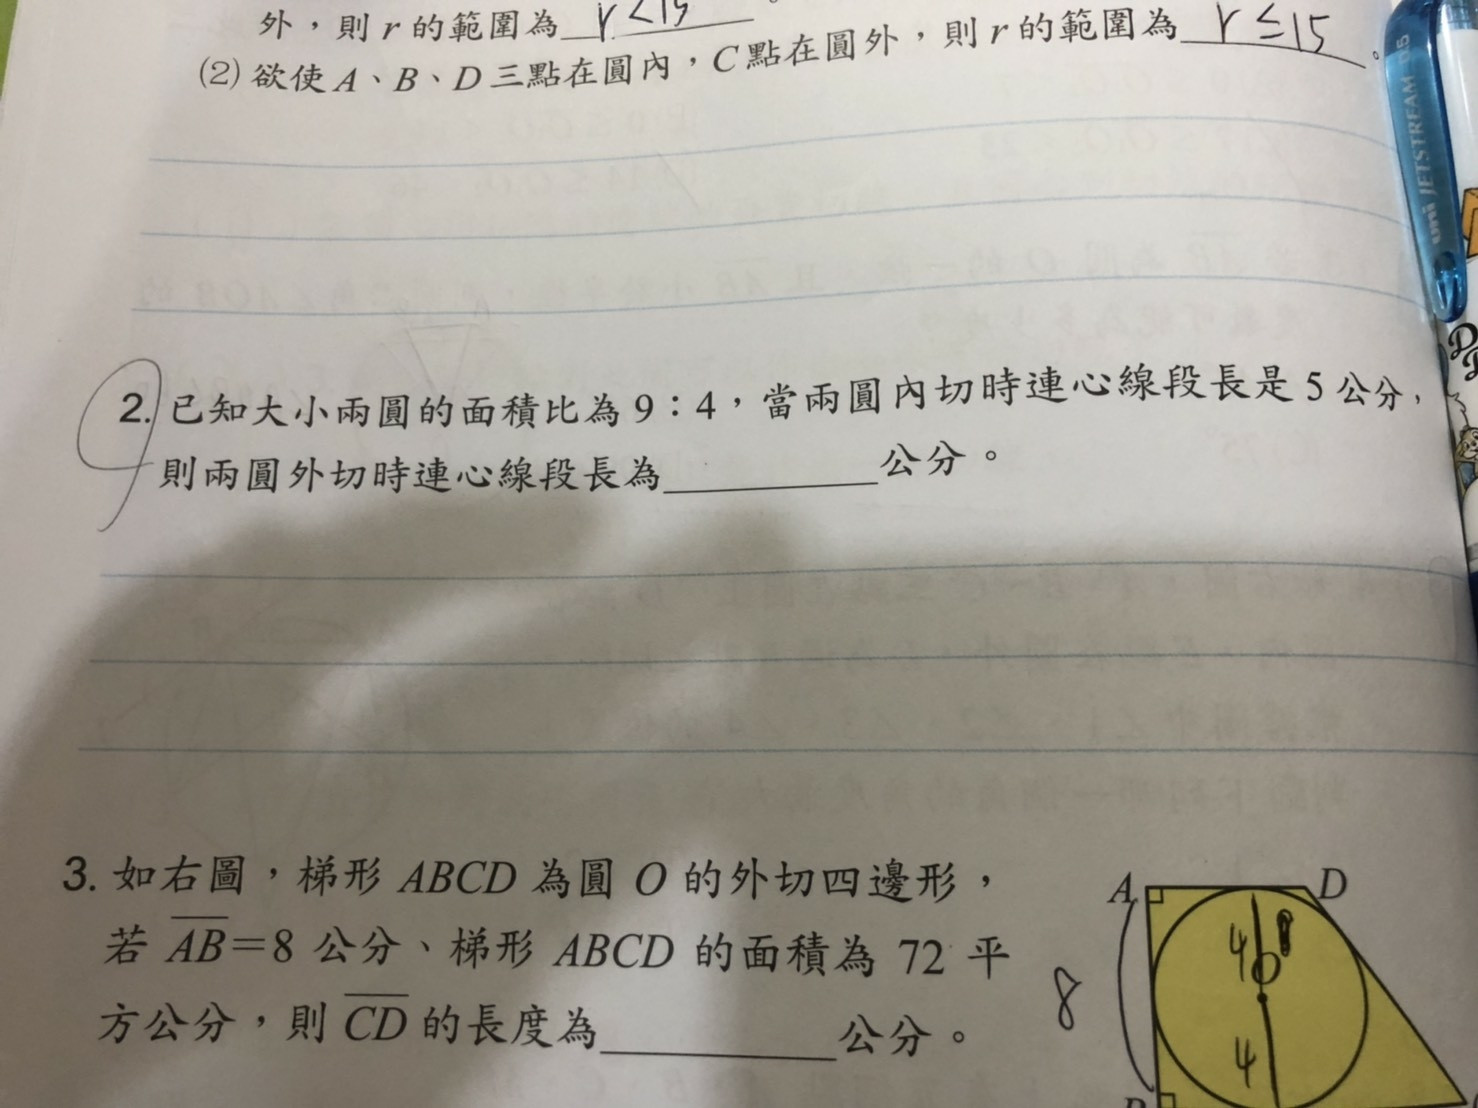 外，則 r 的範圍為 r<15 。
(2) 欲使 A、B、D 三點在圓內，C 點在圓外，則 r 的範圍為 r≤15 。
uni JETSTREAM 0.5
2. 已知大小兩圓的面積比為 9：4，當兩圓內切時連心線段長是 5 公分，
則兩圓外切時連心線段長為__________公分。
3. 如右圖，梯形 ABCD 為圓 O 的外切四邊形，
若 AB=8 公分、梯形 ABCD 的面積為 72 平
方公分，則 CD 的長度為__________公分。
A D
4
O
8
4
B